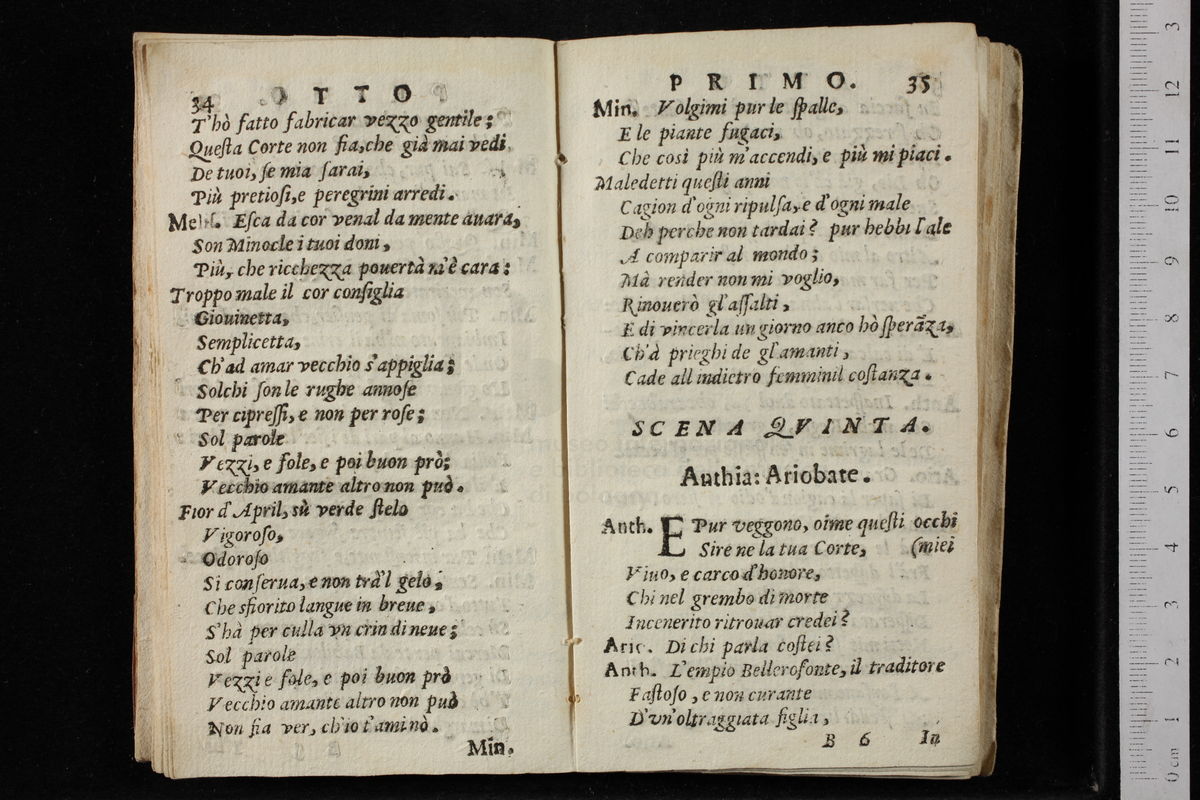 34 OTTO
T'hò fatto fabricar vezzo gentile;
Questa Corte non fia, che già mai vedi
De tuoi, se mia sarai,
Più pretiosi, e peregrini arredi.
Meliss. Esca da cor venal da mente avara,
Son Minocle i tuoi doni,
Più, che ricchezza pouertà m'è cara:
Troppo male il cor consiglia
Giouinetta,
Semplicetta,
Ch'ad amar vecchio s'appiglia;
Solchi son le rughe annose
Per cipressi, e non per rose;
Sol parole
Vezzi, e fole, e poi buon prò;
Vecchio amante altro non può.
Fior d'April, sù verde stelo
Vigoroso,
Odoroso
Si conserua, e non trà'l gelo;
Che sfiorito langue in breue,
S'hà per culla vn crin di neue;
Sol parole
Vezzi e fole, e poi buon prò
Vecchio amante altro non può
Non fia ver, ch'io t'ami nò.
Min.
PRIMO. 35
Min. Volgimi pur le spalle,
E le piante fugaci,
Che così più m'accendi, e più mi piaci.
Maledetti questi anni
Cagion d'ogni ripulsa, e d'ogni male
Deh perche non tardai? pur hebbi l'ale
A comparir al mondo;
Mà render non mi voglio,
Rinouerò gl'assalti,
E di vincerla un giorno anco hò sperãza,
Ch'à prieghi de gl'amanti,
Cade all indietro femminil costanza.
SCENA QVINTA.
Anthia: Ariobate.
Anth. E Pur veggono, oime questi occhi
Sire ne la tua Corte, (miei
Viuo, e carco d'honore,
Chi nel grembo di morte
Incenerito ritrouar credei?
Ario. Di chi parla costei?
Anth. L'empio Bellerofonte, il traditore
Fastoso, e non curante
D'vn'oltraggiata figlia,
B 6 In
12 11 10 9 8 7 6 5 4 3 2 1 0 cm
3